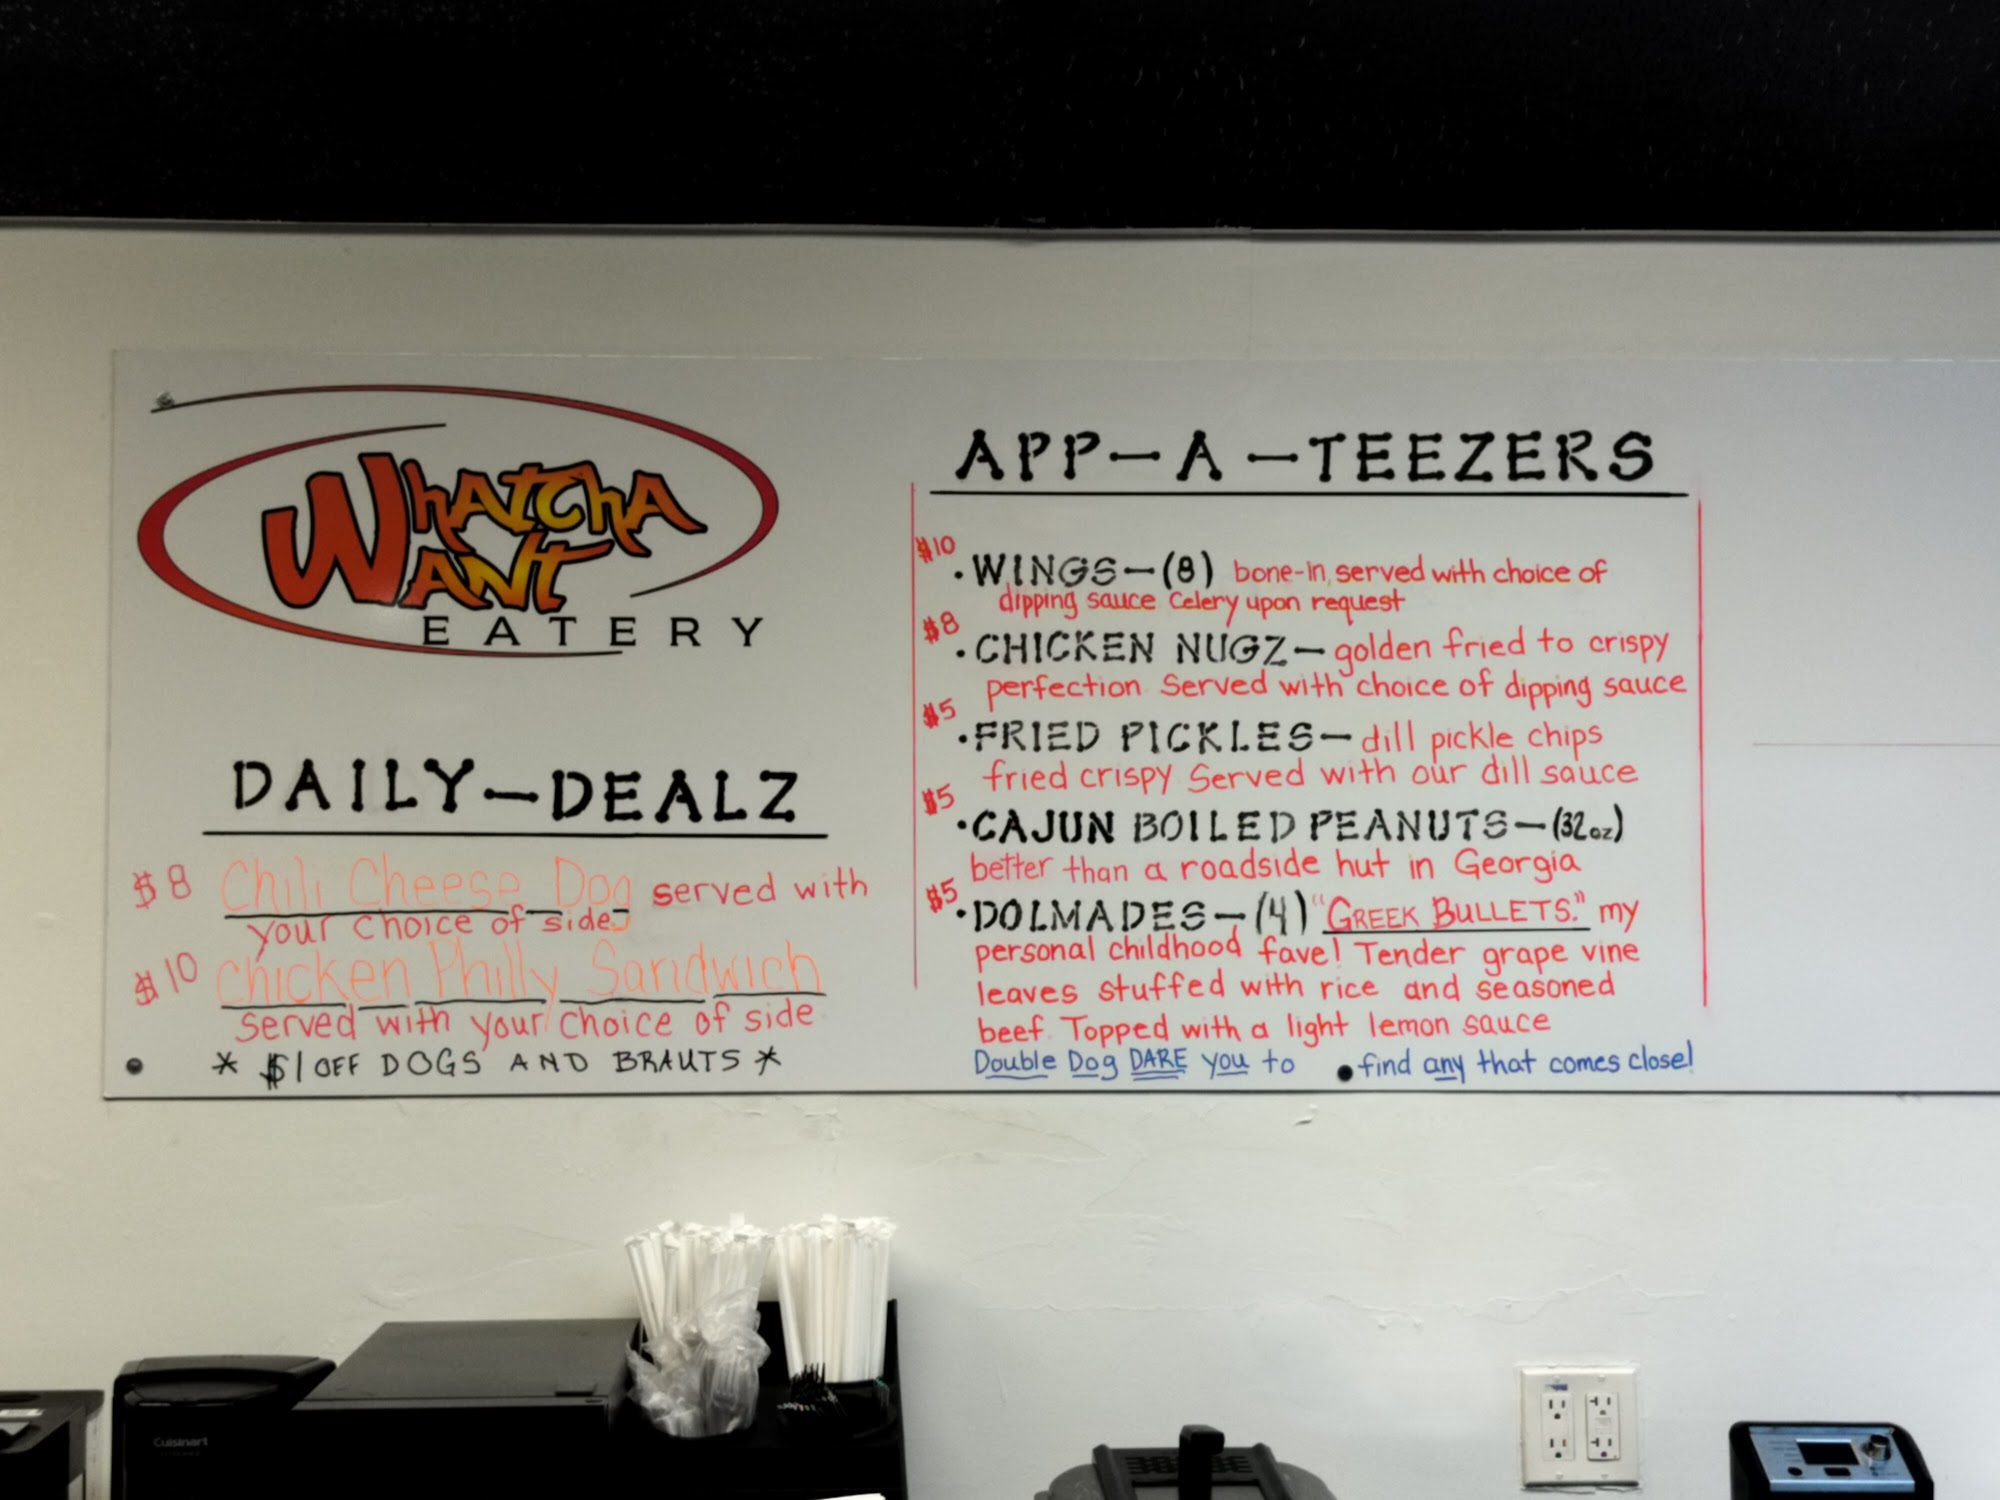 Whatcha
Want
EATERY
DAILY—DEALZ
$8 Chili Cheese Dog served with
your choice of side
$10 Chicken Philly Sandwich
served with your choice of side
* $1 OFF DOGS AND BRAUTS *
APP—A—TEEZERS
$10
• WINGS—(8) bone-in, served with choice of
dipping sauce Celery upon request
$8
• CHICKEN NUGZ— golden fried to crispy
perfection. Served with choice of dipping sauce
$5
• FRIED PICKLES— dill pickle chips
fried crispy Served with our dill sauce
$5
• CAJUN BOILED PEANUTS—(32oz)
better than a roadside hut in Georgia
$5
• DOLMADES—(4) "GREEK BULLETS." my
personal childhood fave! Tender grape vine
leaves stuffed with rice and seasoned
beef. Topped with a light lemon sauce
Double Dog DARE you to find any that comes close!
Cuisinart